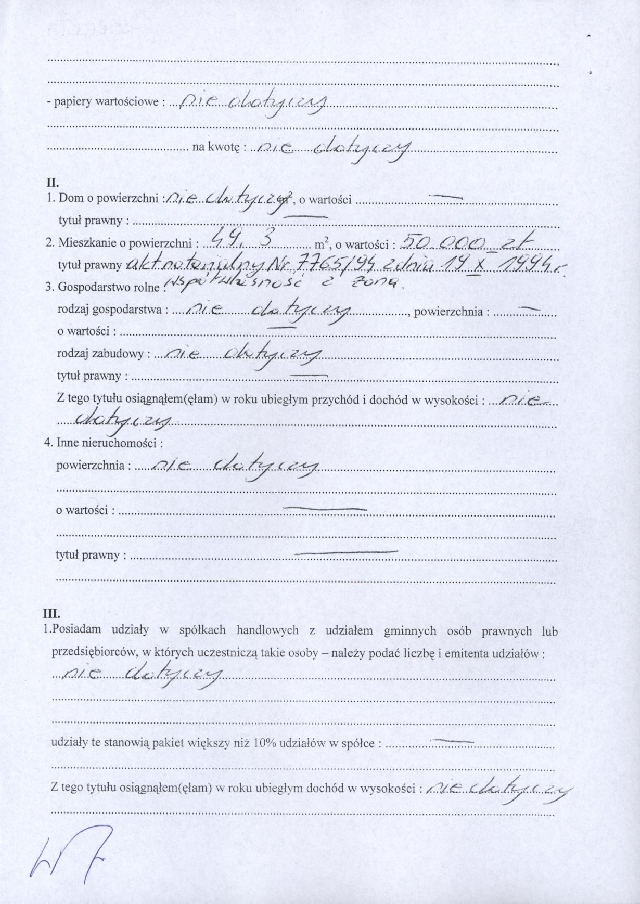 - papiery wartościowe : nie dotyczy
na kwotę : nie dotyczy
II.
1. Dom o powierzchni : nie dotyczy m², o wartości —
tytuł prawny : —
2. Mieszkanie o powierzchni : 49,3 m², o wartości : 50 000 zł
tytuł prawny akt notarialny Nr 7765/94 z dnia 19 X 1994 r.
współwłasność z żoną.
3. Gospodarstwo rolne :
rodzaj gospodarstwa : nie dotyczy, powierzchnia : —
o wartości : —
rodzaj zabudowy : nie dotyczy
tytuł prawny : —
Z tego tytułu osiągnąłem(ęłam) w roku ubiegłym przychód i dochód w wysokości : nie
dotyczy
4. Inne nieruchomości :
powierzchnia : nie dotyczy
o wartości : —
tytuł prawny : —
III.
1.Posiadam udziały w spółkach handlowych z udziałem gminnych osób prawnych lub
przedsiębiorców, w których uczestniczą takie osoby – należy podać liczbę i emitenta udziałów :
nie dotyczy
udziały te stanowią pakiet większy niż 10% udziałów w spółce : —
Z tego tytułu osiągnąłem(ęłam) w roku ubiegłym dochód w wysokości : nie dotyczy